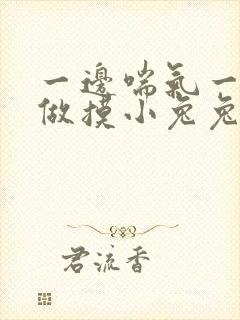 一邊喘氣一
做摸小兔兔
君流香